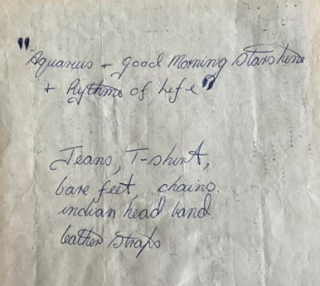 "Aquarius + Good Morning Starshine
+ Rythms of Life"
Jeans, T-shirt,
bare feet, chains.
indian head band
leather straps